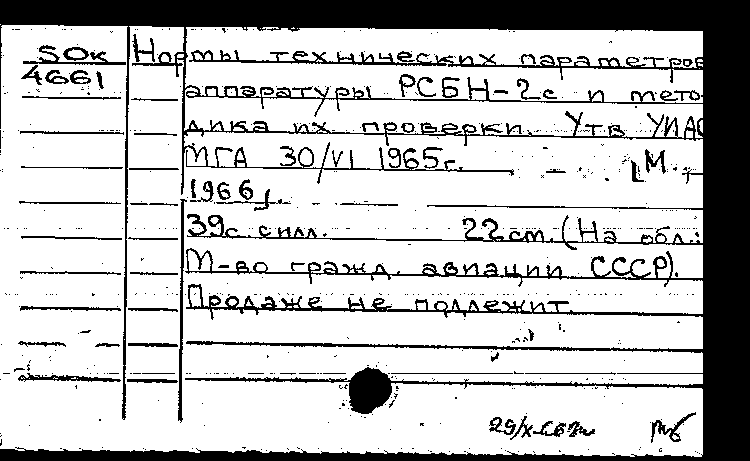 50к Нормы технических параметров
4661 аппаратуры РСБН-2с и мето-
дика их проверки. Утв УИАС
МГА 30/VI 1965г. [М.,
1966].
39с. с илл. 22 см. (На обл.:
М-во гражд. авиации СССР).
Продаже не подлежит.